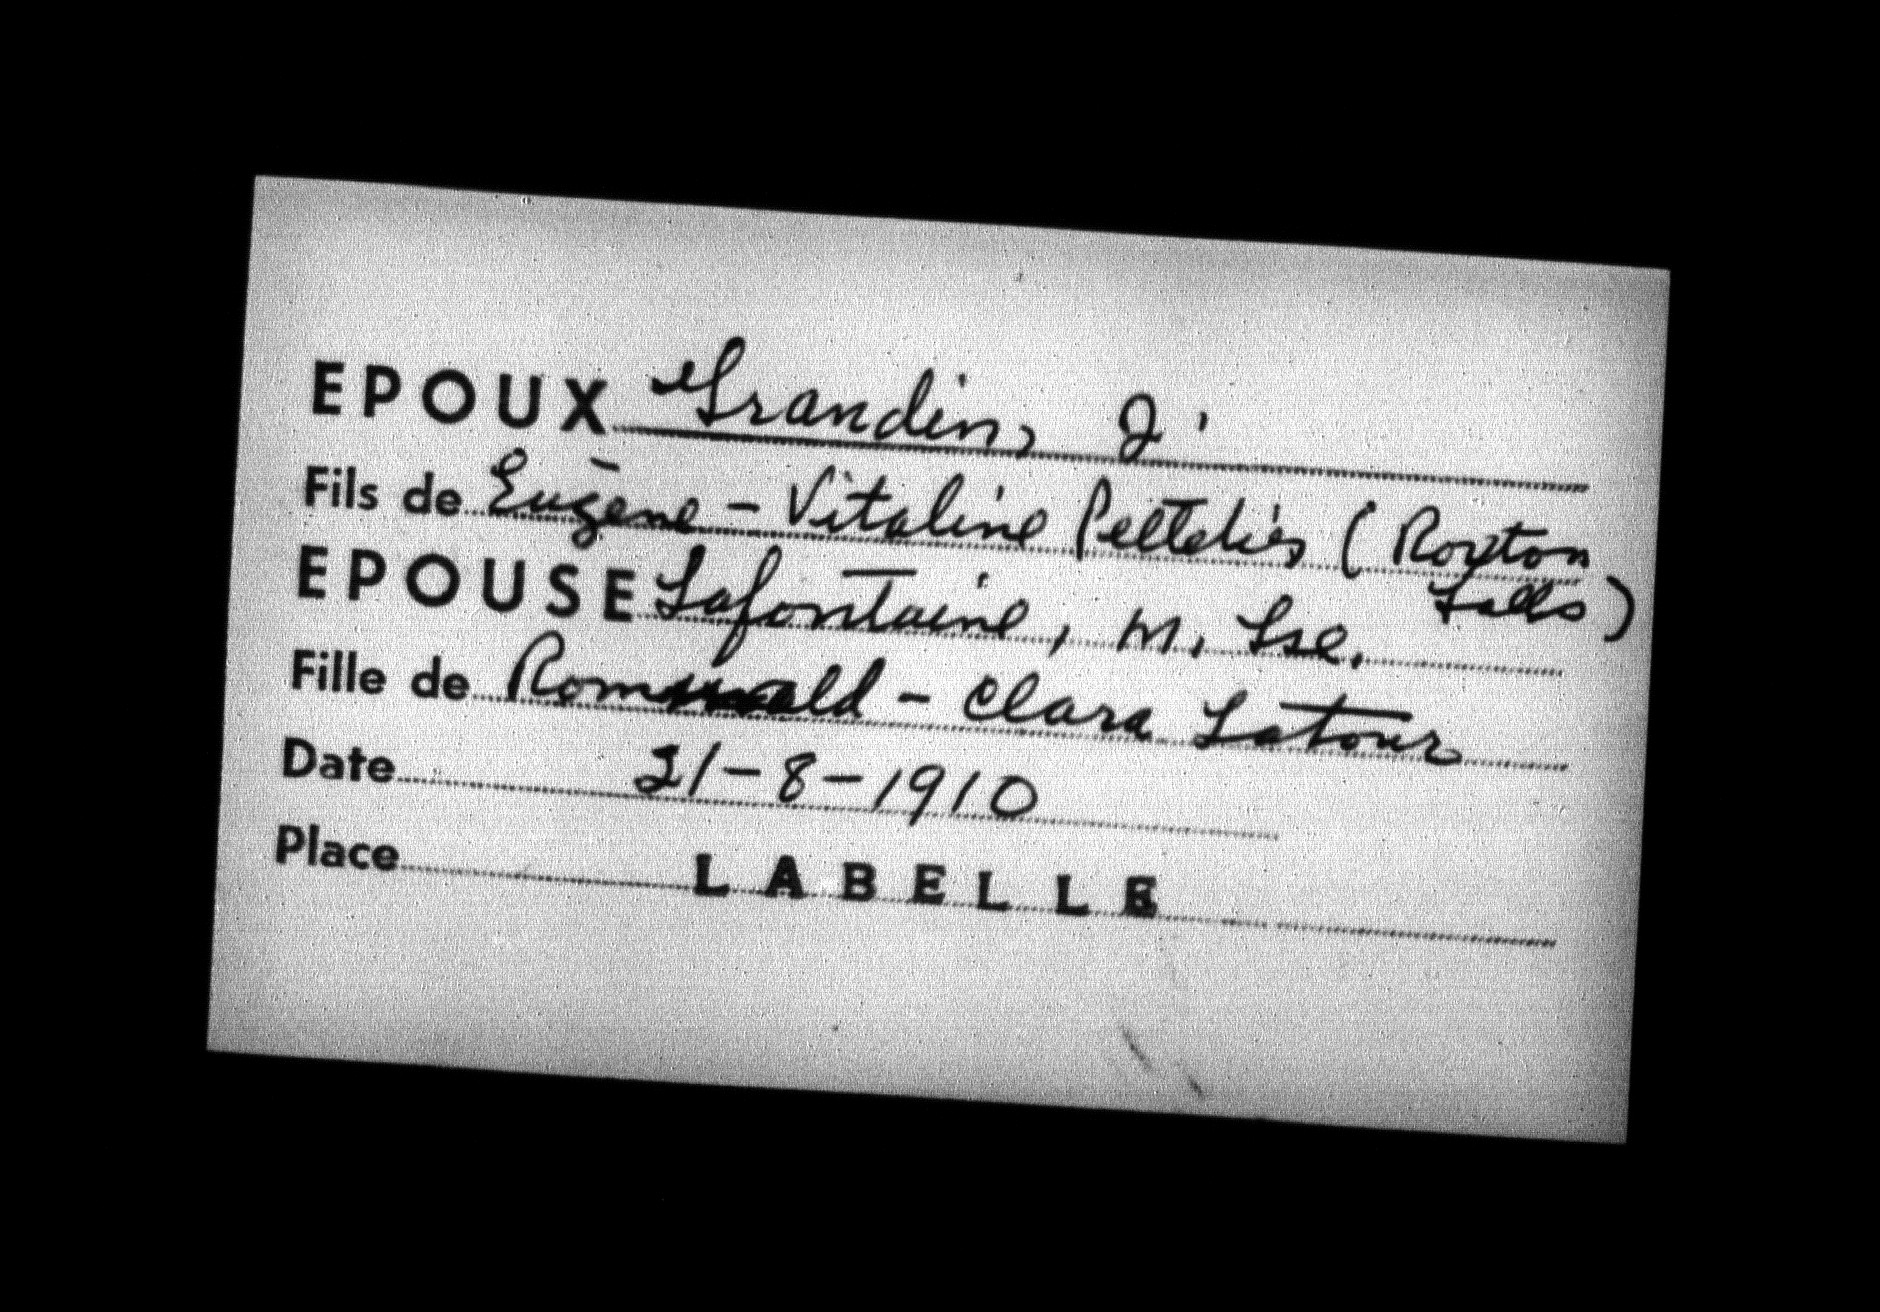 EPOUX Grandin, J.
Fils de Eugène - Vitaline Pelletier (Roxton
Falls)
EPOUSE Lafontaine, M. Lse.
Fille de Romuald - Clara Latour
Date 21-8-1910
Place LABELLE